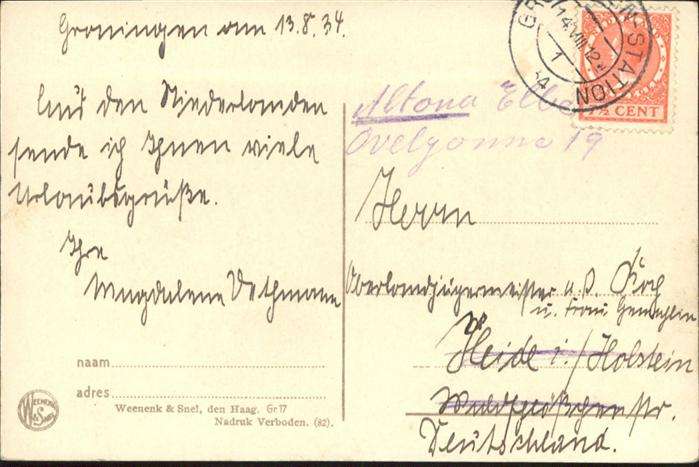 Groningen am 13.8.34.
Aus den Niederlanden
sende ich Ihnen viele
Urlaubsgrüße.
Ihre
Magdalene Dethmann
naam
adres
Weenenk & Snel, den Haag. Gr 17
Nadruk Verboden. (82).
WEENENK & SNEL
STATION
1½ CENT
Altona Elbe
Ovelgönne 19
Herrn
Oberlandjägermeister a.D. Koch
u. Frau Gemahlin
Heide i./Holstein
Deutschland.